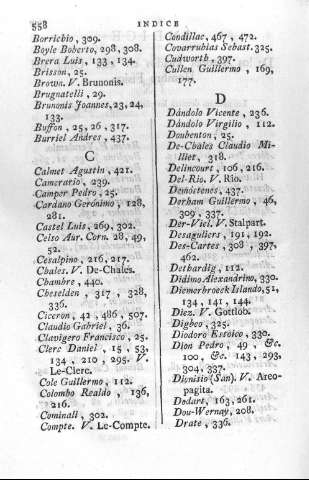 558 INDICE
Borrichio, 309.
Boyle Boberto, 298, 308.
Brera Luis, 133, 134.
Brisson, 25.
Brown. V. Brunonis.
Brugnatelli, 29.
Brunonis Joannes, 23, 24,
133.
Buffon, 25, 26, 317.
Burriel Andres, 437.
C
Calmet Agustin, 421.
Camerario, 239.
Campor Pedro, 25.
Cardano Gerónimo, 128,
281.
Castel Luis, 269, 302.
Celso Aur. Corn. 28, 49,
52.
Cesalpino, 216, 217.
Chales. V. De-Chales.
Chambre, 440.
Cheselden, 317, 328,
336.
Ciceron, 42, 486, 507.
Claudio Gabriel, 36.
Clavigero Francisco, 25.
Clerc Daniel, 15, 53,
134, 210, 295. V.
Le-Clerc.
Cole Guillermo, 112.
Colombo Realdo, 136,
216.
Cominall, 302.
Compte. V. Le-Compte.
Condillac, 467, 472.
Covarrubias Sebast. 325.
Cudworth, 397.
Cullen Guillermo, 169,
177.
D
Dándolo Vicente, 236.
Dándolo Virgilio, 112.
Doubenton, 25.
De-Chales Claudio Mi-
lliet, 318.
Delincourt, 106, 216.
Del-Rio. V. Rio.
Demóstenes, 437.
Derham Guillermo, 46,
309, 337.
Der-Viel. V. Stalpart.
Desaguliers, 191, 192.
Des-Cartes, 308, 397,
462.
Dethardig, 112.
Didimo Alexandrino, 330.
Diemerbroeck Islando, 51,
134, 141, 144.
Diez. V. Gottlob.
Digbeo, 325.
Diodoro Estóico, 330.
Dion Pedro, 49, &c.
100, &c. 143, 293,
304, 337.
Dionisio (San). V. Areo-
pagita.
Dodart, 163, 261.
Dou-Wernay, 208.
Drate, 336.